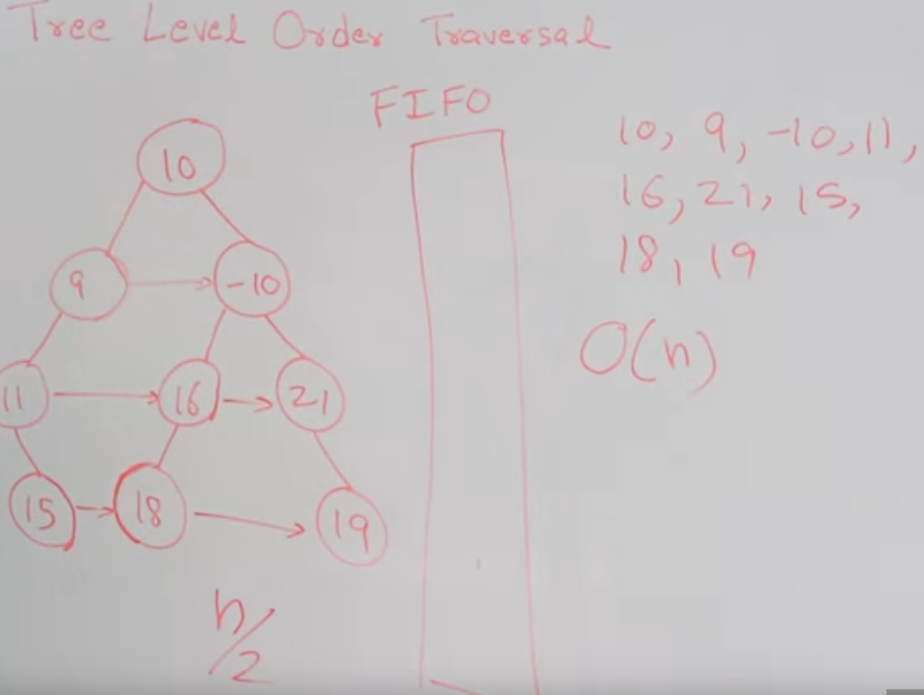 Tree Level Order Traversal
FIFO
10, 9, -10, 11,
16, 21, 15,
18, 19
O(n)
10
9 -10
11 16 21
15 18 19
n/2